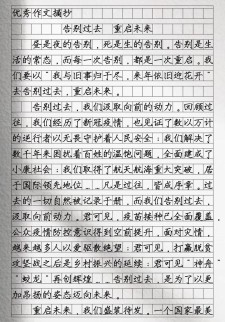 优秀作文摘抄
告别过去 重启未来
昼是夜的告别，死是生的告别。告别是生
活的常态，而每一次告别，都是一次重启。我
们要以“我与旧事归于尽，来年依旧迎花开”
去告别过去，重启未来。
告别过去，我们汲取向前的动力。回顾过
往，我们经历了新冠疫情，也见证了数以万计
的逆行者以无畏守护着人民安全；我们解决了
数千年来困扰着百姓的温饱问题，全面建成了
小康社会；我们取得了航天航海重大突破，居
于国际领先地位……凡是过往，皆成序章。过
去的一切自然被记录于册，而我们告别过去，
汲取向前动力。君可见，疫苗接种已全面覆盖，
公众疫情防控意识得到空前提升，面对灾情，
越来越多人以爱驱散绝望；君可见，打赢脱贫
攻坚战之后是乡村振兴的延续；君可见“神舟”
“蛟龙”再创辉煌……告别过去，是为了以更
加昂扬的姿态迈向未来。
重启未来，我们盛装待发。一个国家最美